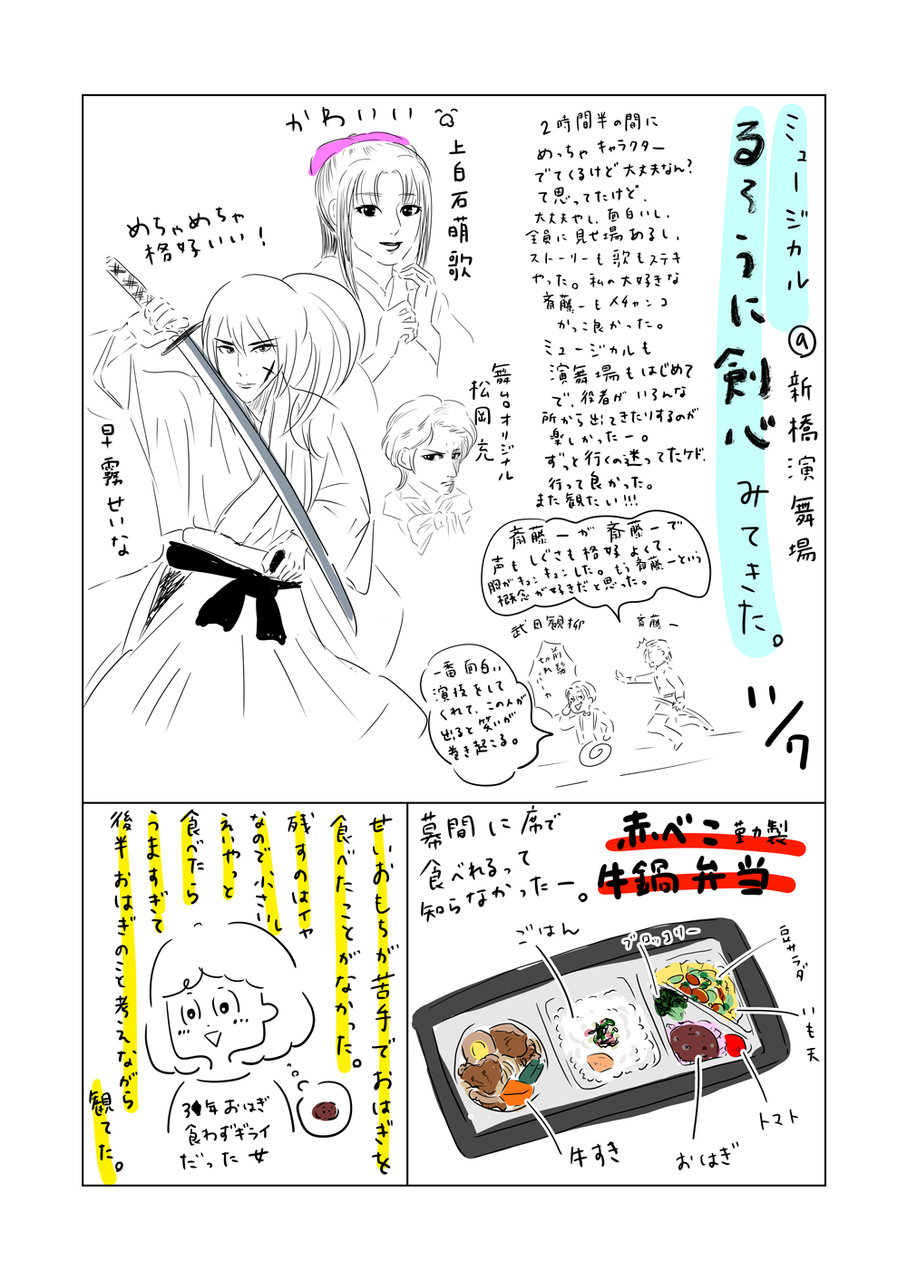 ミュージカル
るろうに剣心みてきた。
@新橋演舞場
11/7
2時間半の間に
めっちゃキャラクター
でてくるけど大丈夫なん?
て思ってたけど、
大丈夫やし、面白いし、
全員に見せ場あるし、
ストーリーも歌もステキ
やった。私の大好きな
斎藤一もメチャンコ
かっこ良かった。
ミュージカルも
演舞場もはじめて
で、役者がいろんな
所から出てきたりするのが
楽しかったー。
ずっと行くの迷ってたケド、
行って良かった。
また観たい!!!
かわいい
上白石萌歌
めちゃめちゃ
格好いい!
早霧せいな
舞台オリジナル
松岡充
斎藤一が斎藤一で
声もしぐさも格好よくて、
胸がキュンキュンした。もう斎藤一という
概念が好きだと思った。
斎藤一
武田観柳
前髪
切れ
一番面白い
演技をして
くれて、この人が
出ると笑いが
巻き起こる。
赤べこ勤製
牛鍋弁当
幕間に席で
食べれるって
知らなかったー。
ごはん
ブロッコリー
豆サラダ
いも天
トマト
おはぎ
牛すき
せいおもちが苦手でおはぎを
食べたことがなかった。
残すのはイヤ
なので小さいし
えいやっと
食べたら
うますぎて
後半おはぎのこと考えながら
観てた。
年おはぎ
食わずギライ
だった女